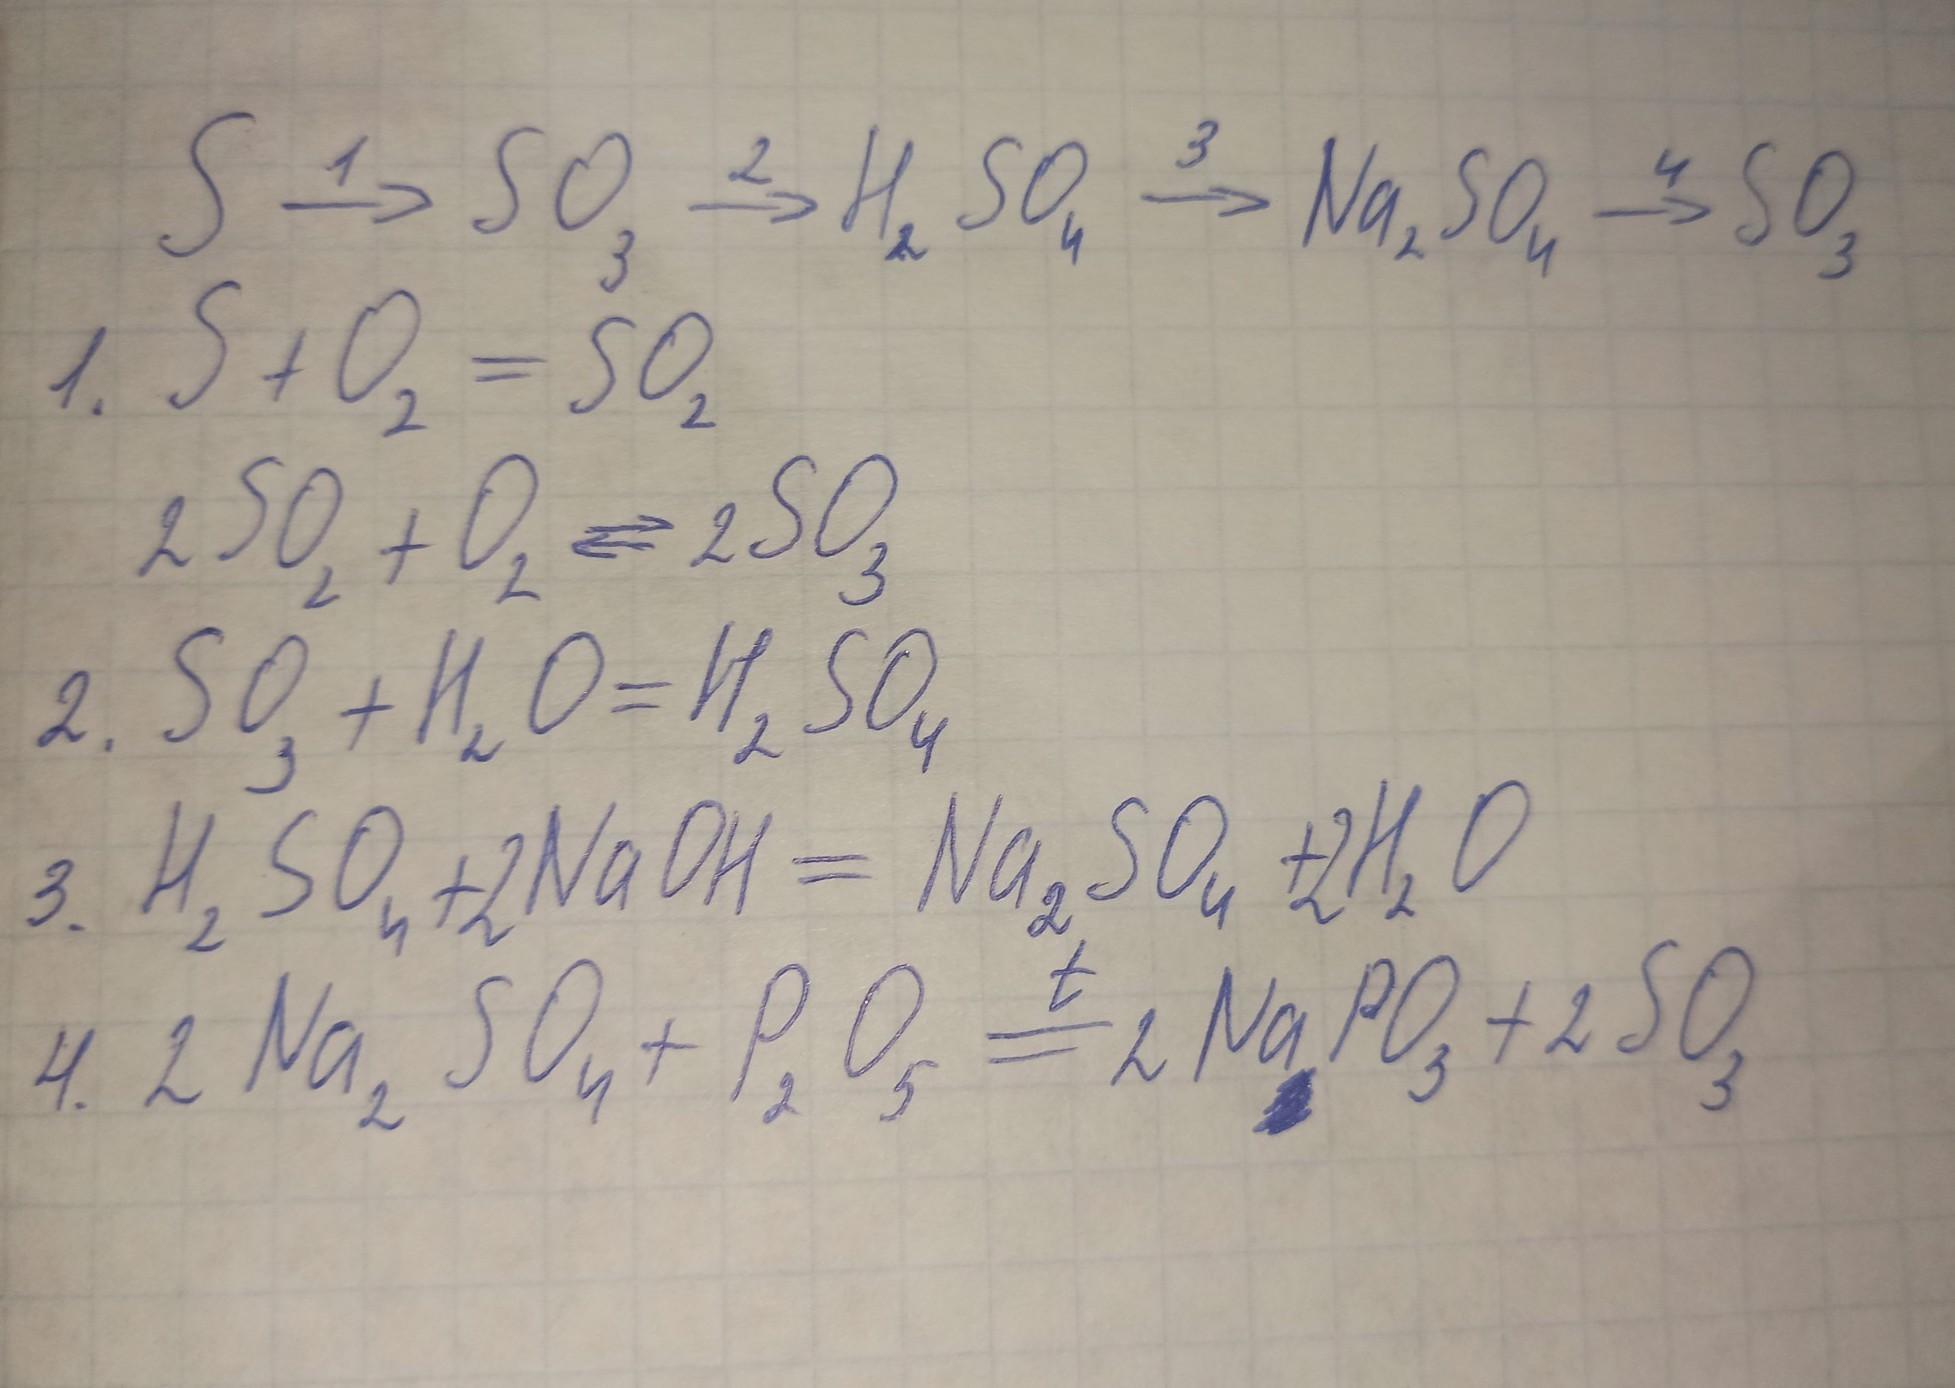 S →¹ SO₃ →² H₂SO₄ →³ Na₂SO₄ →⁴ SO₃
1. S + O₂ = SO₂
2SO₂ + O₂ ⇌ 2SO₃
2. SO₃ + H₂O = H₂SO₄
3. H₂SO₄ + 2NaOH = Na₂SO₄ + 2H₂O
4. 2Na₂SO₄ + P₂O₅ =ᵗ 2NaPO₃ + 2SO₃